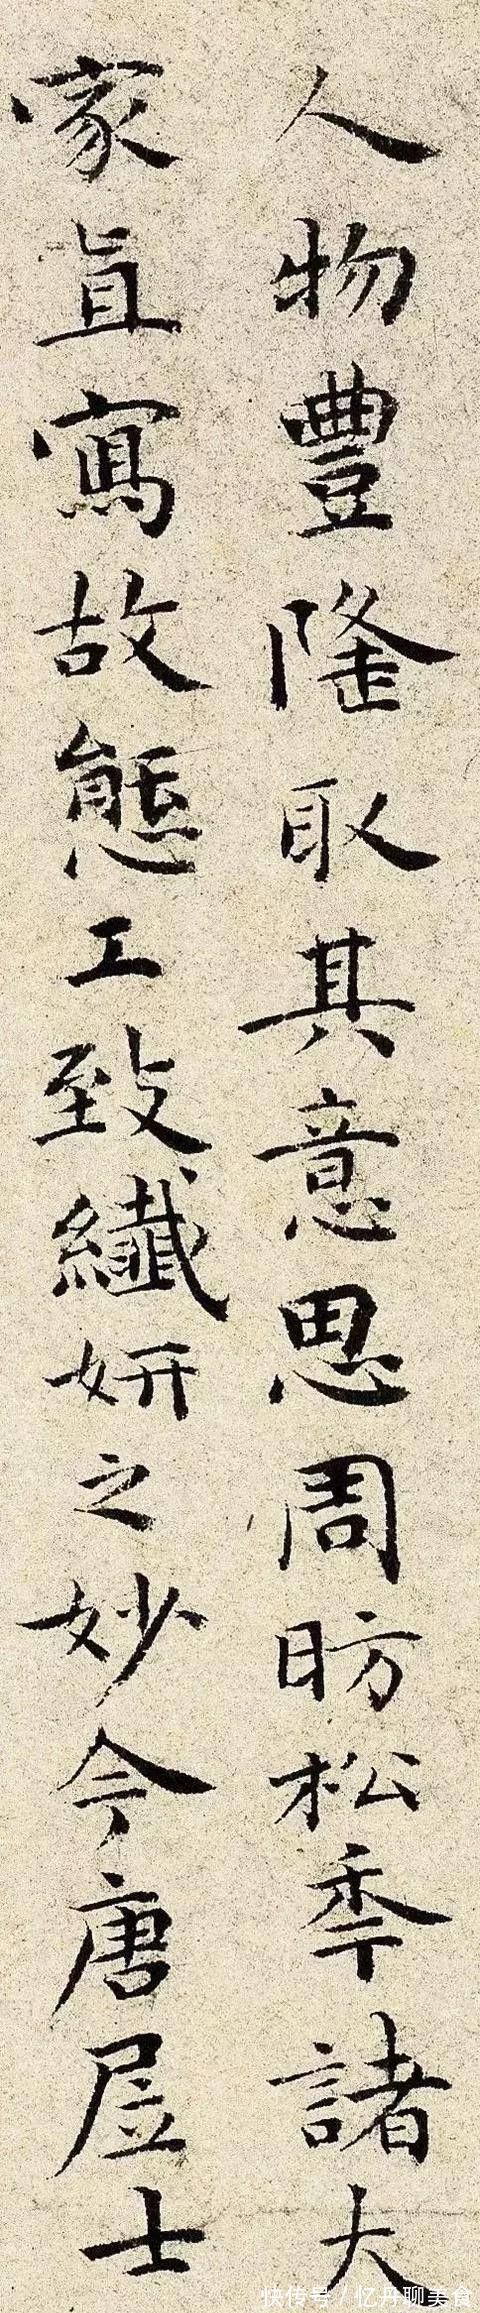 人物豐隆取其意思周昉松秊諸大
家真寫故態工致纖妍之妙今唐居士
快传号/忆丹聊美食